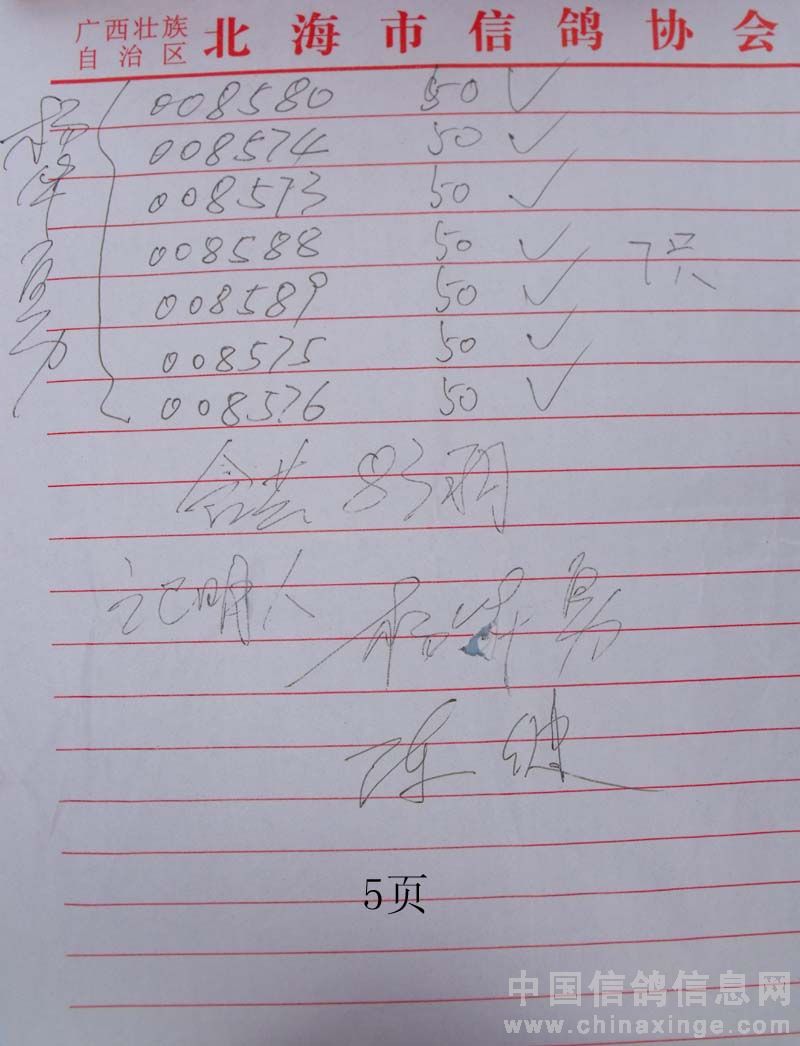 广西壮族自治区 北海市信鸽协会
008580 50 ✓
008574 50 ✓
008573 50 ✓
008588 50 ✓ 7只
008589 50 ✓
008575 50 ✓
008576 50 ✓
83羽
证明人
陈健
5页
中国信鸽信息网
www.chinaxinge.com